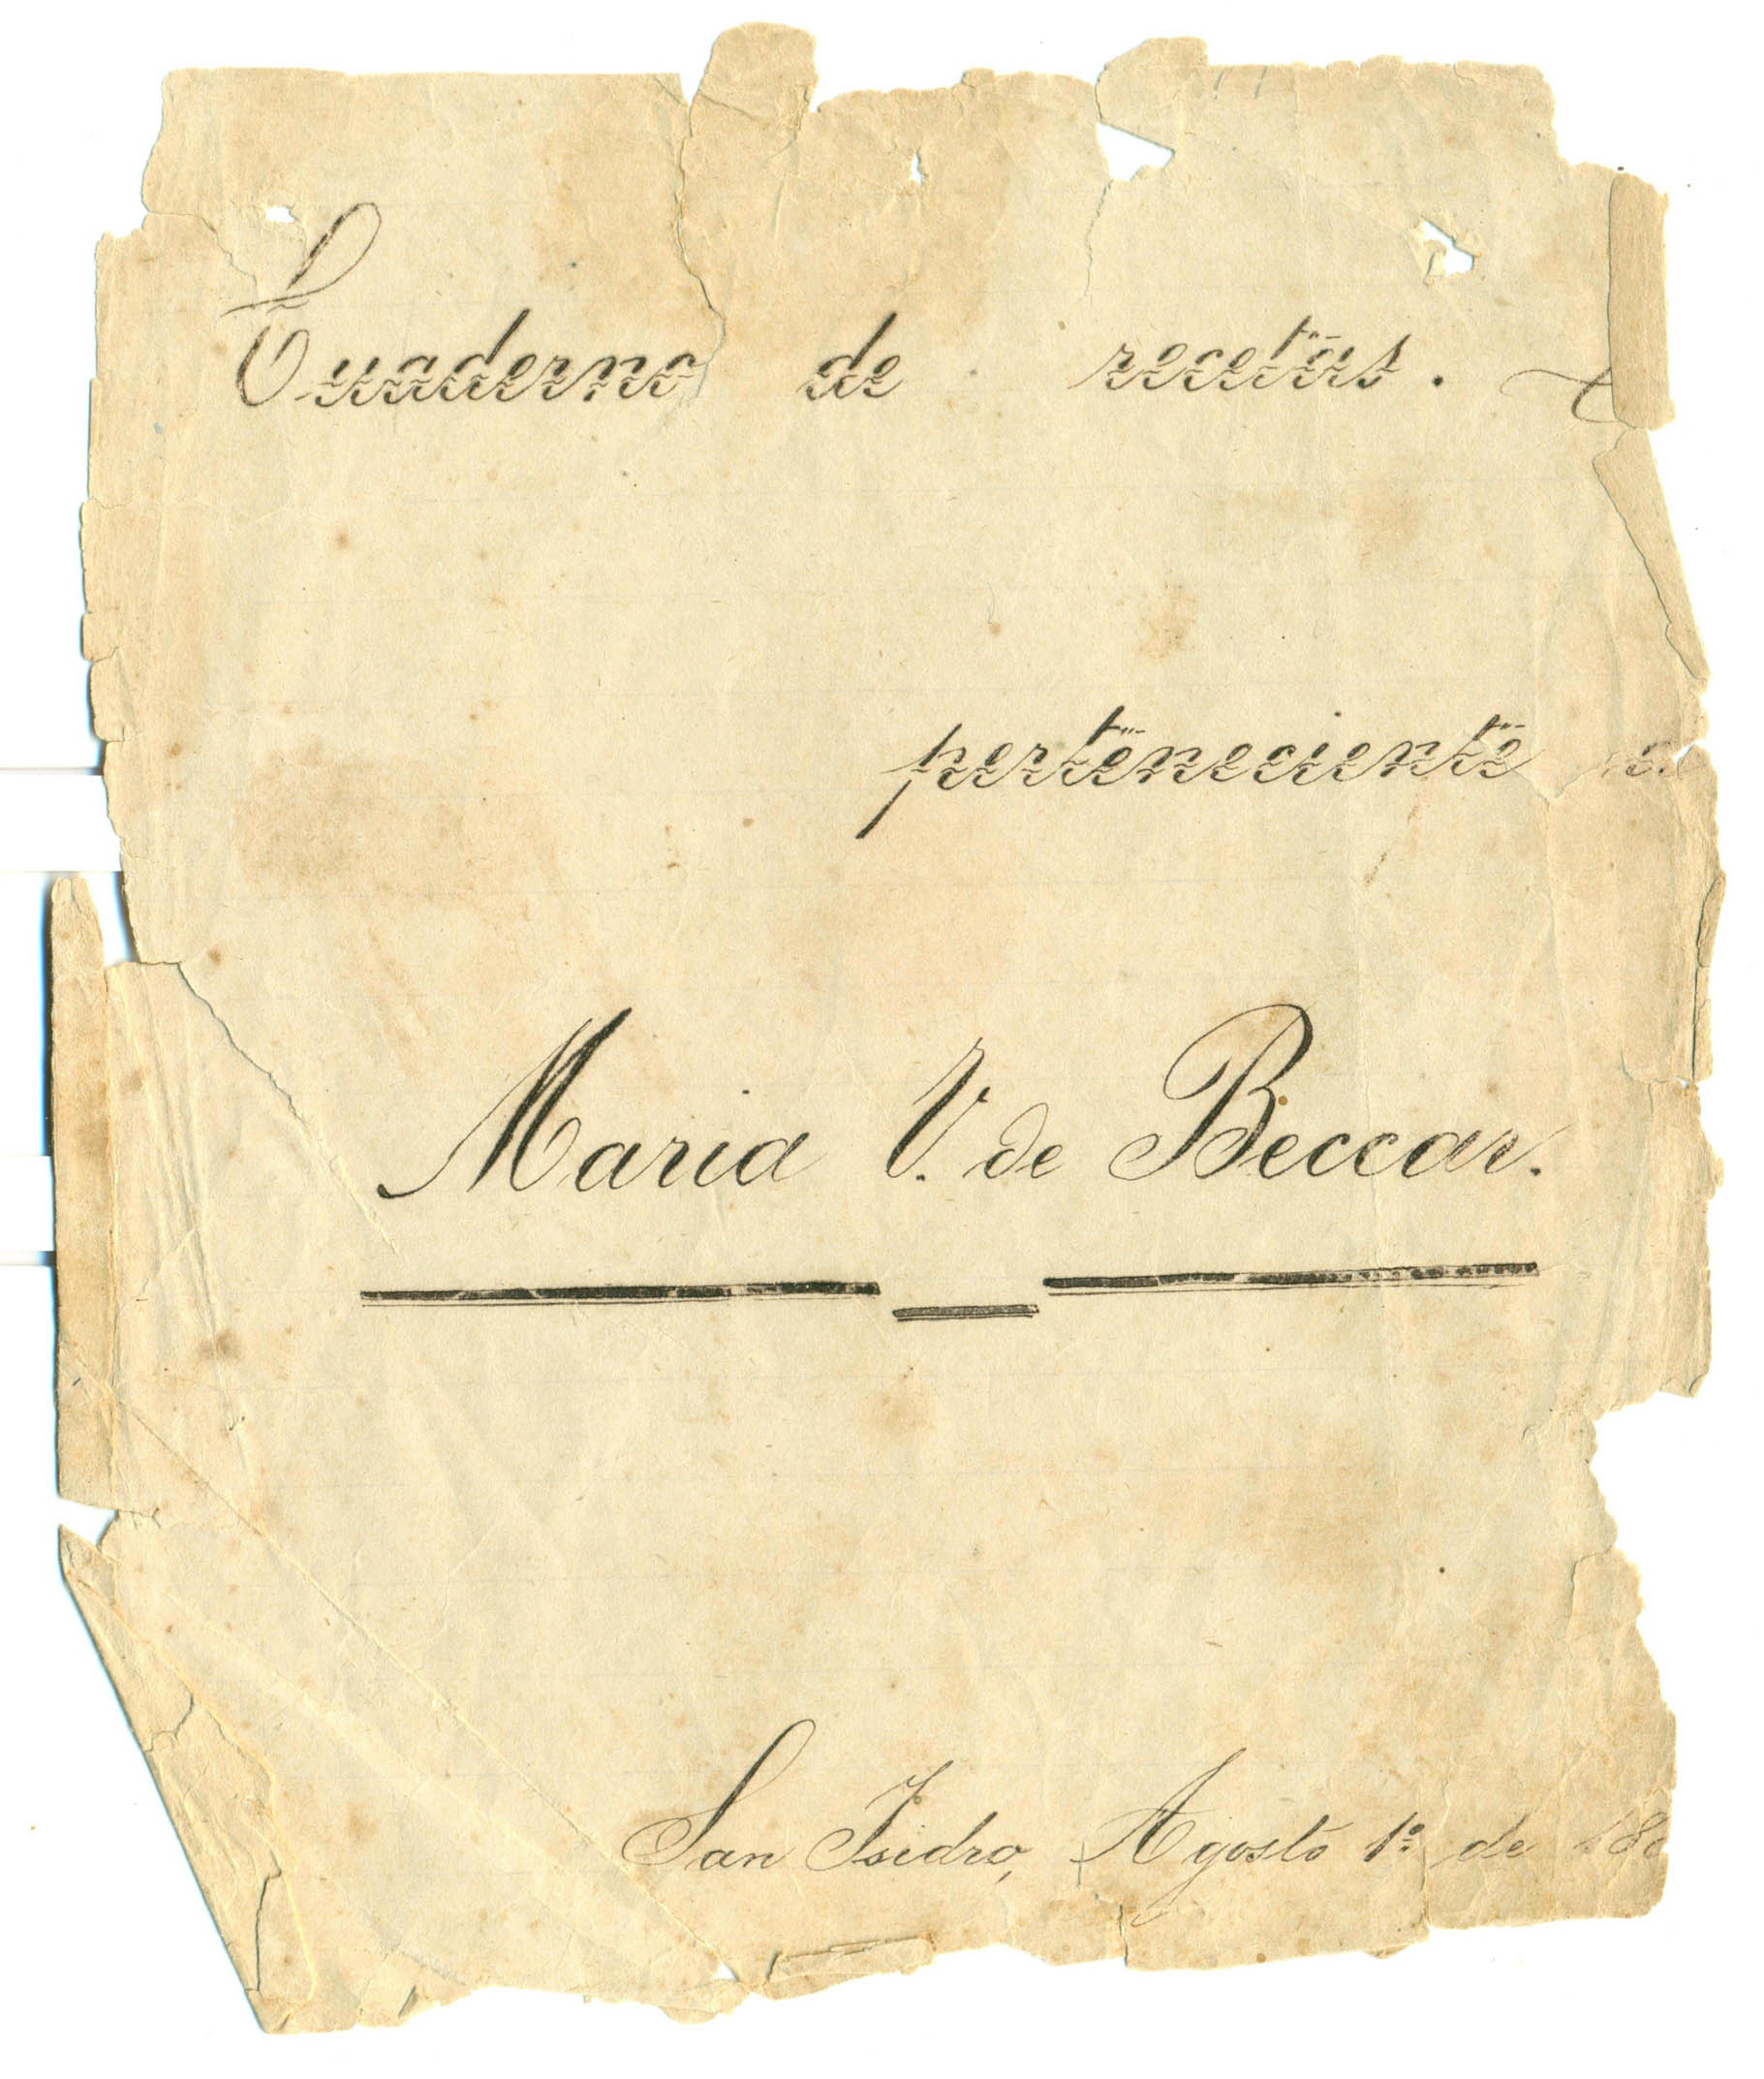 Cuaderno de recetas.
perteneciente a
Maria V. de Beccar.
San Isidro, Agosto 1º de 18